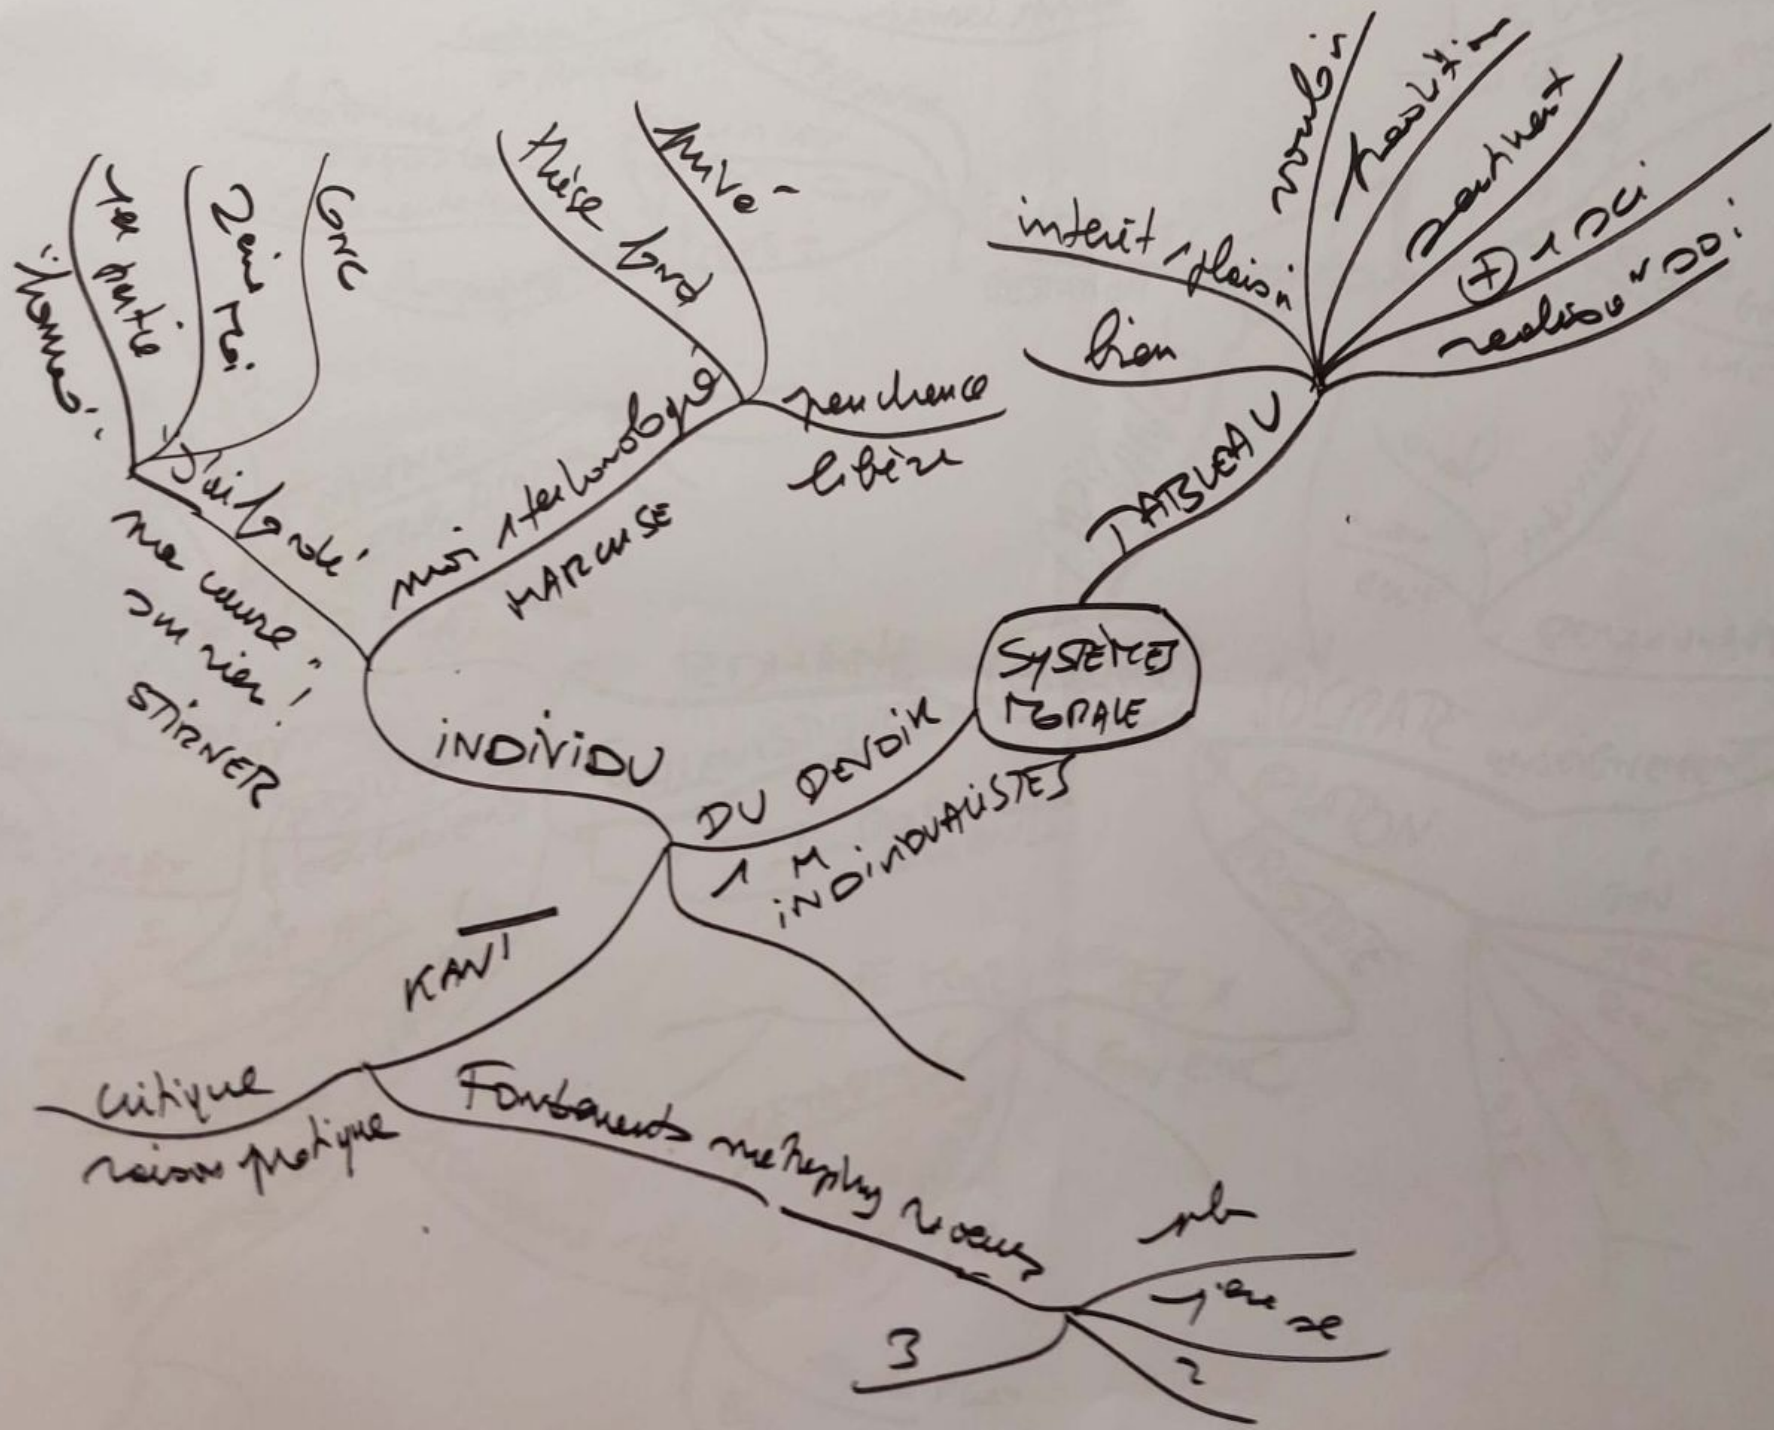 SYSTÈMES
MORALE
TABLEAU
bien
intérêt / plaisir
vouloir
tradition
sentiment
⊕ 1 sci
réalisa° soi
DU DEVOIR
1 M
INDIVIDUALISTES
INDIVIDU
moi / technologie
MARCUSE
thèse fond
privé
penchance
libère
J'ai fondé
ma cause
sur rien !
STIRNER
1ère partie
"homme"
2ème Moi
Conc
KANT
critique
raison pratique
Fondements métaphy moeurs
pb
1ère se
2
3